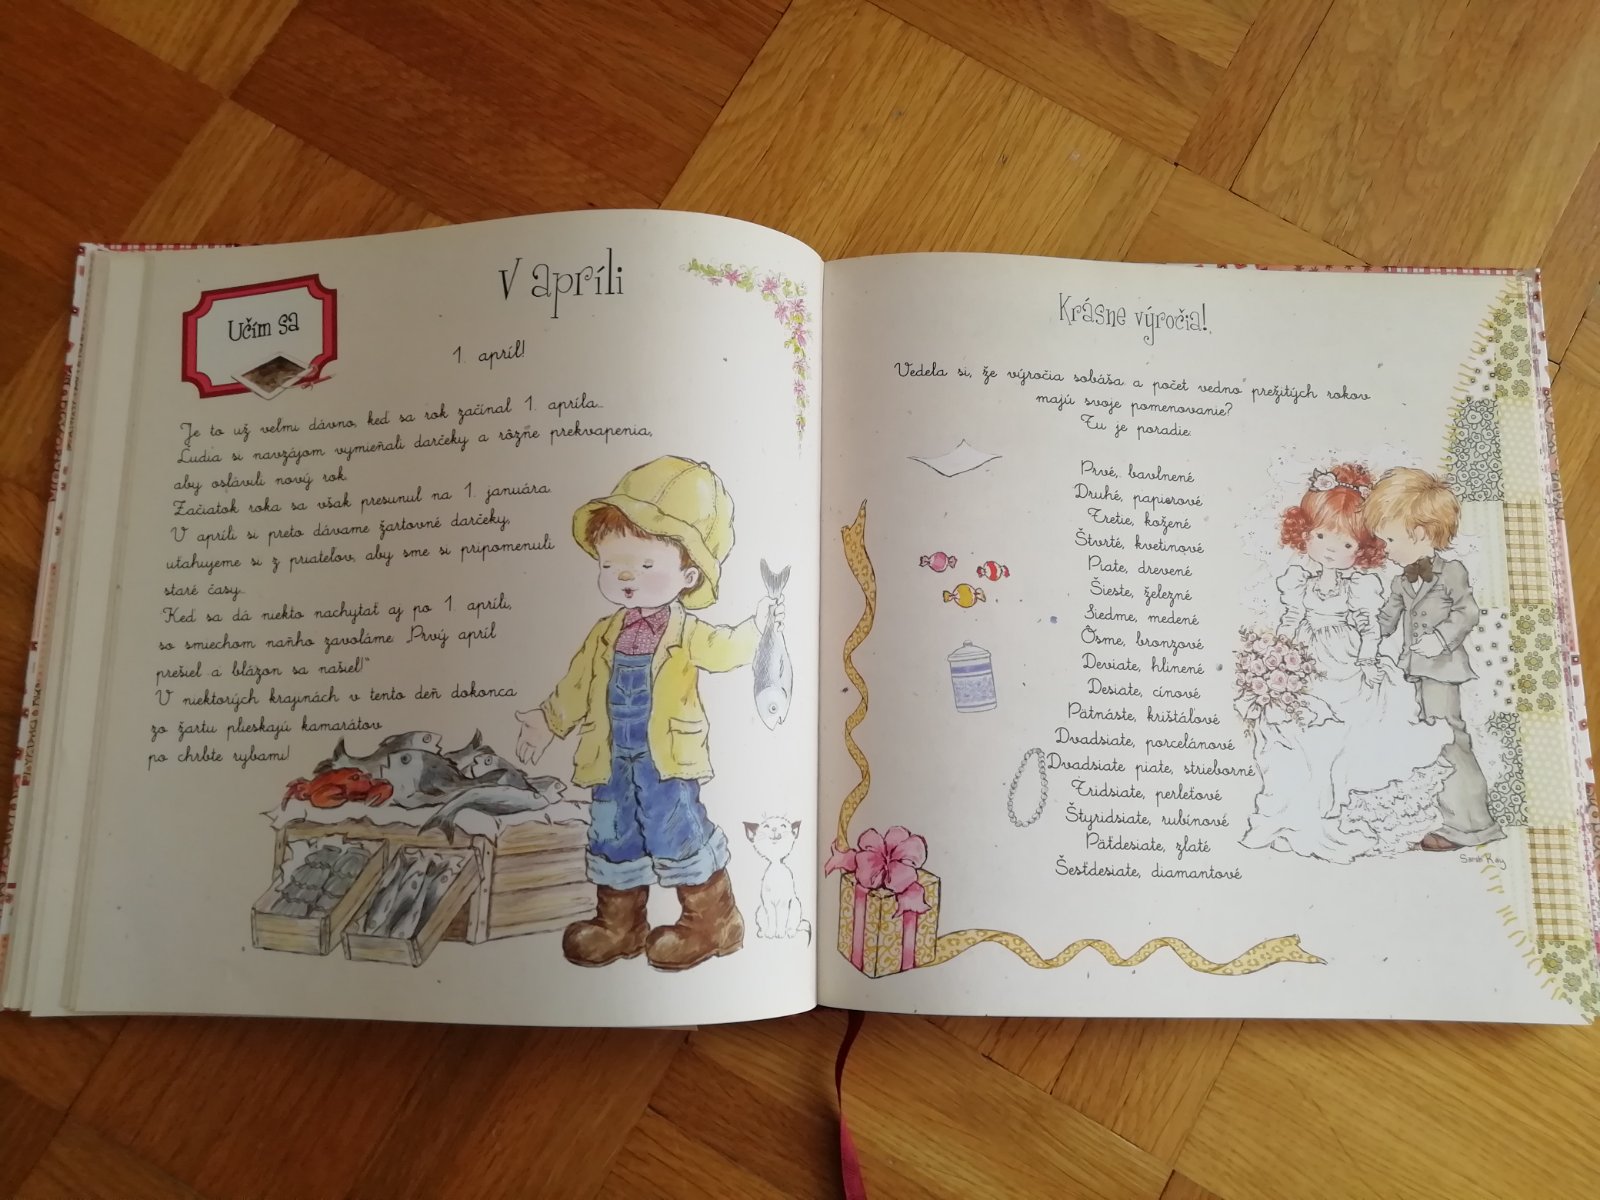 V apríli
Učím sa
1. apríl!
Je to už veľmi dávno, keď sa rok začínal 1. apríla...
Ľudia si navzájom vymieňali darčeky a rôzne prekvapenia,
aby oslávili nový rok.
Začiatok roka sa však presunul na 1. januára.
V apríli si preto dávame žartovné darčeky,
uťahujeme si z priateľov, aby sme si pripomenuli
staré časy...
Keď sa dá niekto nachytať aj po 1. apríli,
so smiechom naňho zavoláme: „Prvý apríl
prešiel a blázon sa našiel!“
V niektorých krajinách v tento deň dokonca
zo žartu plieskajú kamarátov
po chrbte rybami!
Krásne výročia!
Vedela si, že výročia sobáša a počet vedno prežitých rokov
majú svoje pomenovanie?
Tu je poradie:
Prvé, bavlnené
Druhé, papierové
Tretie, kožené
Štvrté, kvetinové
Piate, drevené
Šieste, železné
Siedme, medené
Ôsme, bronzové
Deviate, hlinené
Desiate, cínové
Pätnáste, krištáľové
Dvadsiate, porcelánové
Dvadsiate piate, strieborné
Tridsiate, perleťové
Štyridsiate, rubínové
Päťdesiate, zlaté
Šesťdesiate, diamantové
Sarah Kay